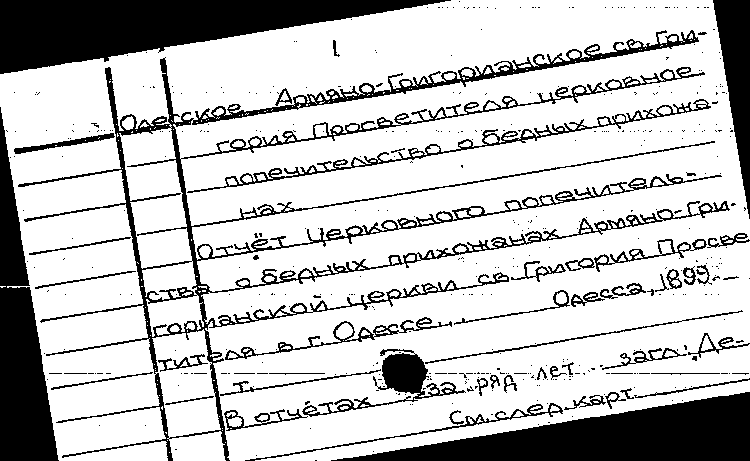 1
Одесское Армяно-Григорианское св. Гри-
гория Просветителя церковное
попечительство о бедных прихожа-
нах
Отчёт Церковного попечитель-
ства о бедных прихожанах Армяно-Гри-
горианской церкви св. Григория Просве
тителя в г. Одессе... Одесса, 1899.-
т.
В отчётах за ряд лет загл: Де-
См. след. карт.